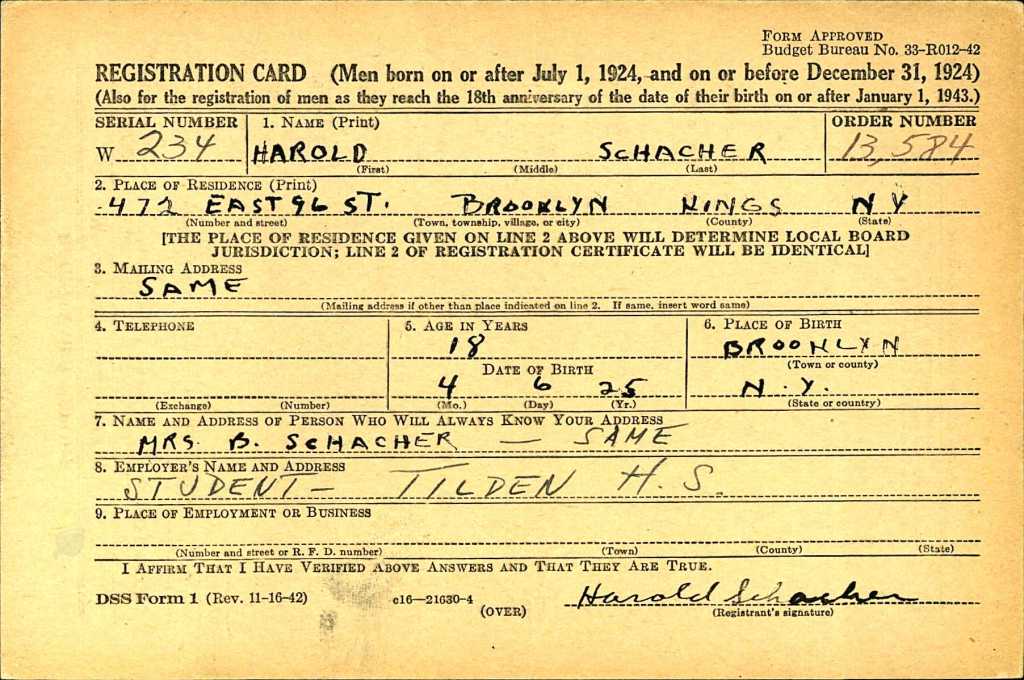 FORM APPROVED
Budget Bureau No. 33-R012-42
REGISTRATION CARD (Men born on or after July 1, 1924, and on or before December 31, 1924)
(Also for the registration of men as they reach the 18th anniversary of the date of their birth on or after January 1, 1943.)
SERIAL NUMBER 1. NAME (Print) ORDER NUMBER
W 234 HAROLD SCHACHER 13,584
(First) (Middle) (Last)
2. PLACE OF RESIDENCE (Print)
472 EAST 96 ST. BROOKLYN KINGS NY
(Number and street) (Town, township, village, or city) (County) (State)
[THE PLACE OF RESIDENCE GIVEN ON LINE 2 ABOVE WILL DETERMINE LOCAL BOARD
JURISDICTION; LINE 2 OF REGISTRATION CERTIFICATE WILL BE IDENTICAL]
3. MAILING ADDRESS
SAME
(Mailing address if other than place indicated on line 2. If same, insert word same)
4. TELEPHONE 5. AGE IN YEARS 6. PLACE OF BIRTH
18 BROOKLYN
(Town or county)
DATE OF BIRTH
4 6 25 N.Y.
(Exchange) (Number) (Mo.) (Day) (Yr.) (State or country)
7. NAME AND ADDRESS OF PERSON WHO WILL ALWAYS KNOW YOUR ADDRESS
MRS. B. SCHACHER — SAME
8. EMPLOYER'S NAME AND ADDRESS
STUDENT — TILDEN H.S.
9. PLACE OF EMPLOYMENT OR BUSINESS
(Number and street or R. F. D. number) (Town) (County) (State)
I AFFIRM THAT I HAVE VERIFIED ABOVE ANSWERS AND THAT THEY ARE TRUE.
DSS Form 1 (Rev. 11-16-42) c16—21630-4 Harold Schacher
(OVER) (Registrant's signature)